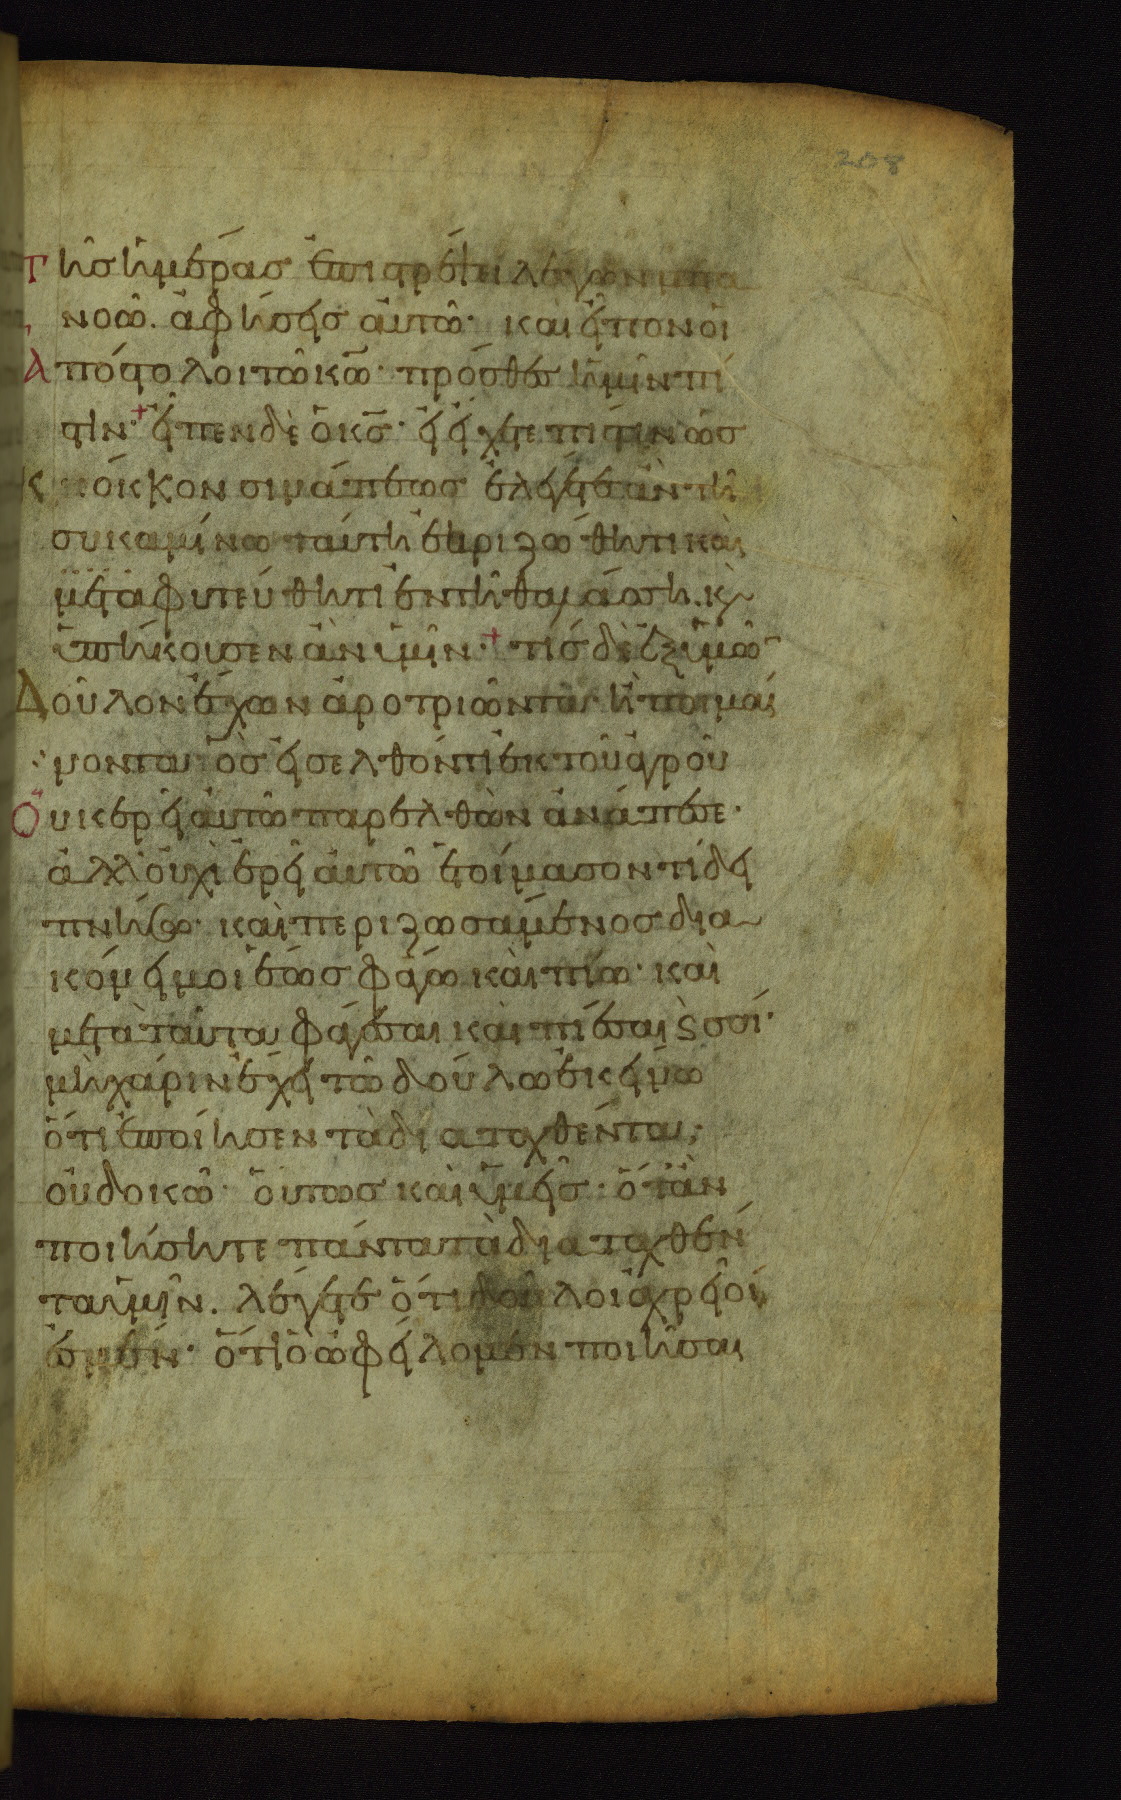 208
τῆς ἡμέρας ἐπιστρέψει λέγων μετα
νοῶ. ἀφήσεις αὐτῶ· καὶ εἶπον οἱ
ἀπόστολοι τῶ κω· πρόσθες ἡμῖν πί
στιν·+ εἶπεν δὲ ὁ κς· εἰ εἴχετε πίστιν ὡς
κόκκον σινάπεως ἐλέγετε ἂν τῆ
συκαμίνω ταύτη ἐκριζώθητι καὶ
μεταφυτεύθητι ἐν τῆ θαλάσση. κ
ὑπήκουσεν ἂν ὑμῖν·+ τίς δὲ ἐξ ὑμῶ
δοῦλον ἔχων ἀροτριῶντα ἢ ποιμαί
μοντα ὃς εἰσελθόντι ἐκ τοῦ ἀγροῦ
οὐκ ἐρεῖ αὐτῶ παρελθὼν ἀνάπεσε·
ἀλλ' οὐχὶ ἐρεῖ αὐτῶ ἑτοίμασον τί δει
πνήσω· καὶ περιζωσάμενος δια
κόνει μοι ἕως φάγω καὶ πίω· καὶ
μετὰ ταῦτα φάγεσαι καὶ πίεσαι σοί·
μὴ χάριν ἔχει τῶ δούλω ἐκείνω
ὅτι ἐποίησεν τὰ διαταχθέντα;
οὐ δοκῶ· οὕτως καὶ ὑμεῖς· ὅταν
ποιήσητε πάντα τὰ διαταχθέν
τα ὑμῖν. λέγετε ὅτι δοῦλοι ἀχρεῖοί
ἐσμέν· ὅτι ὃ ὠφείλομεν ποιῆσαι